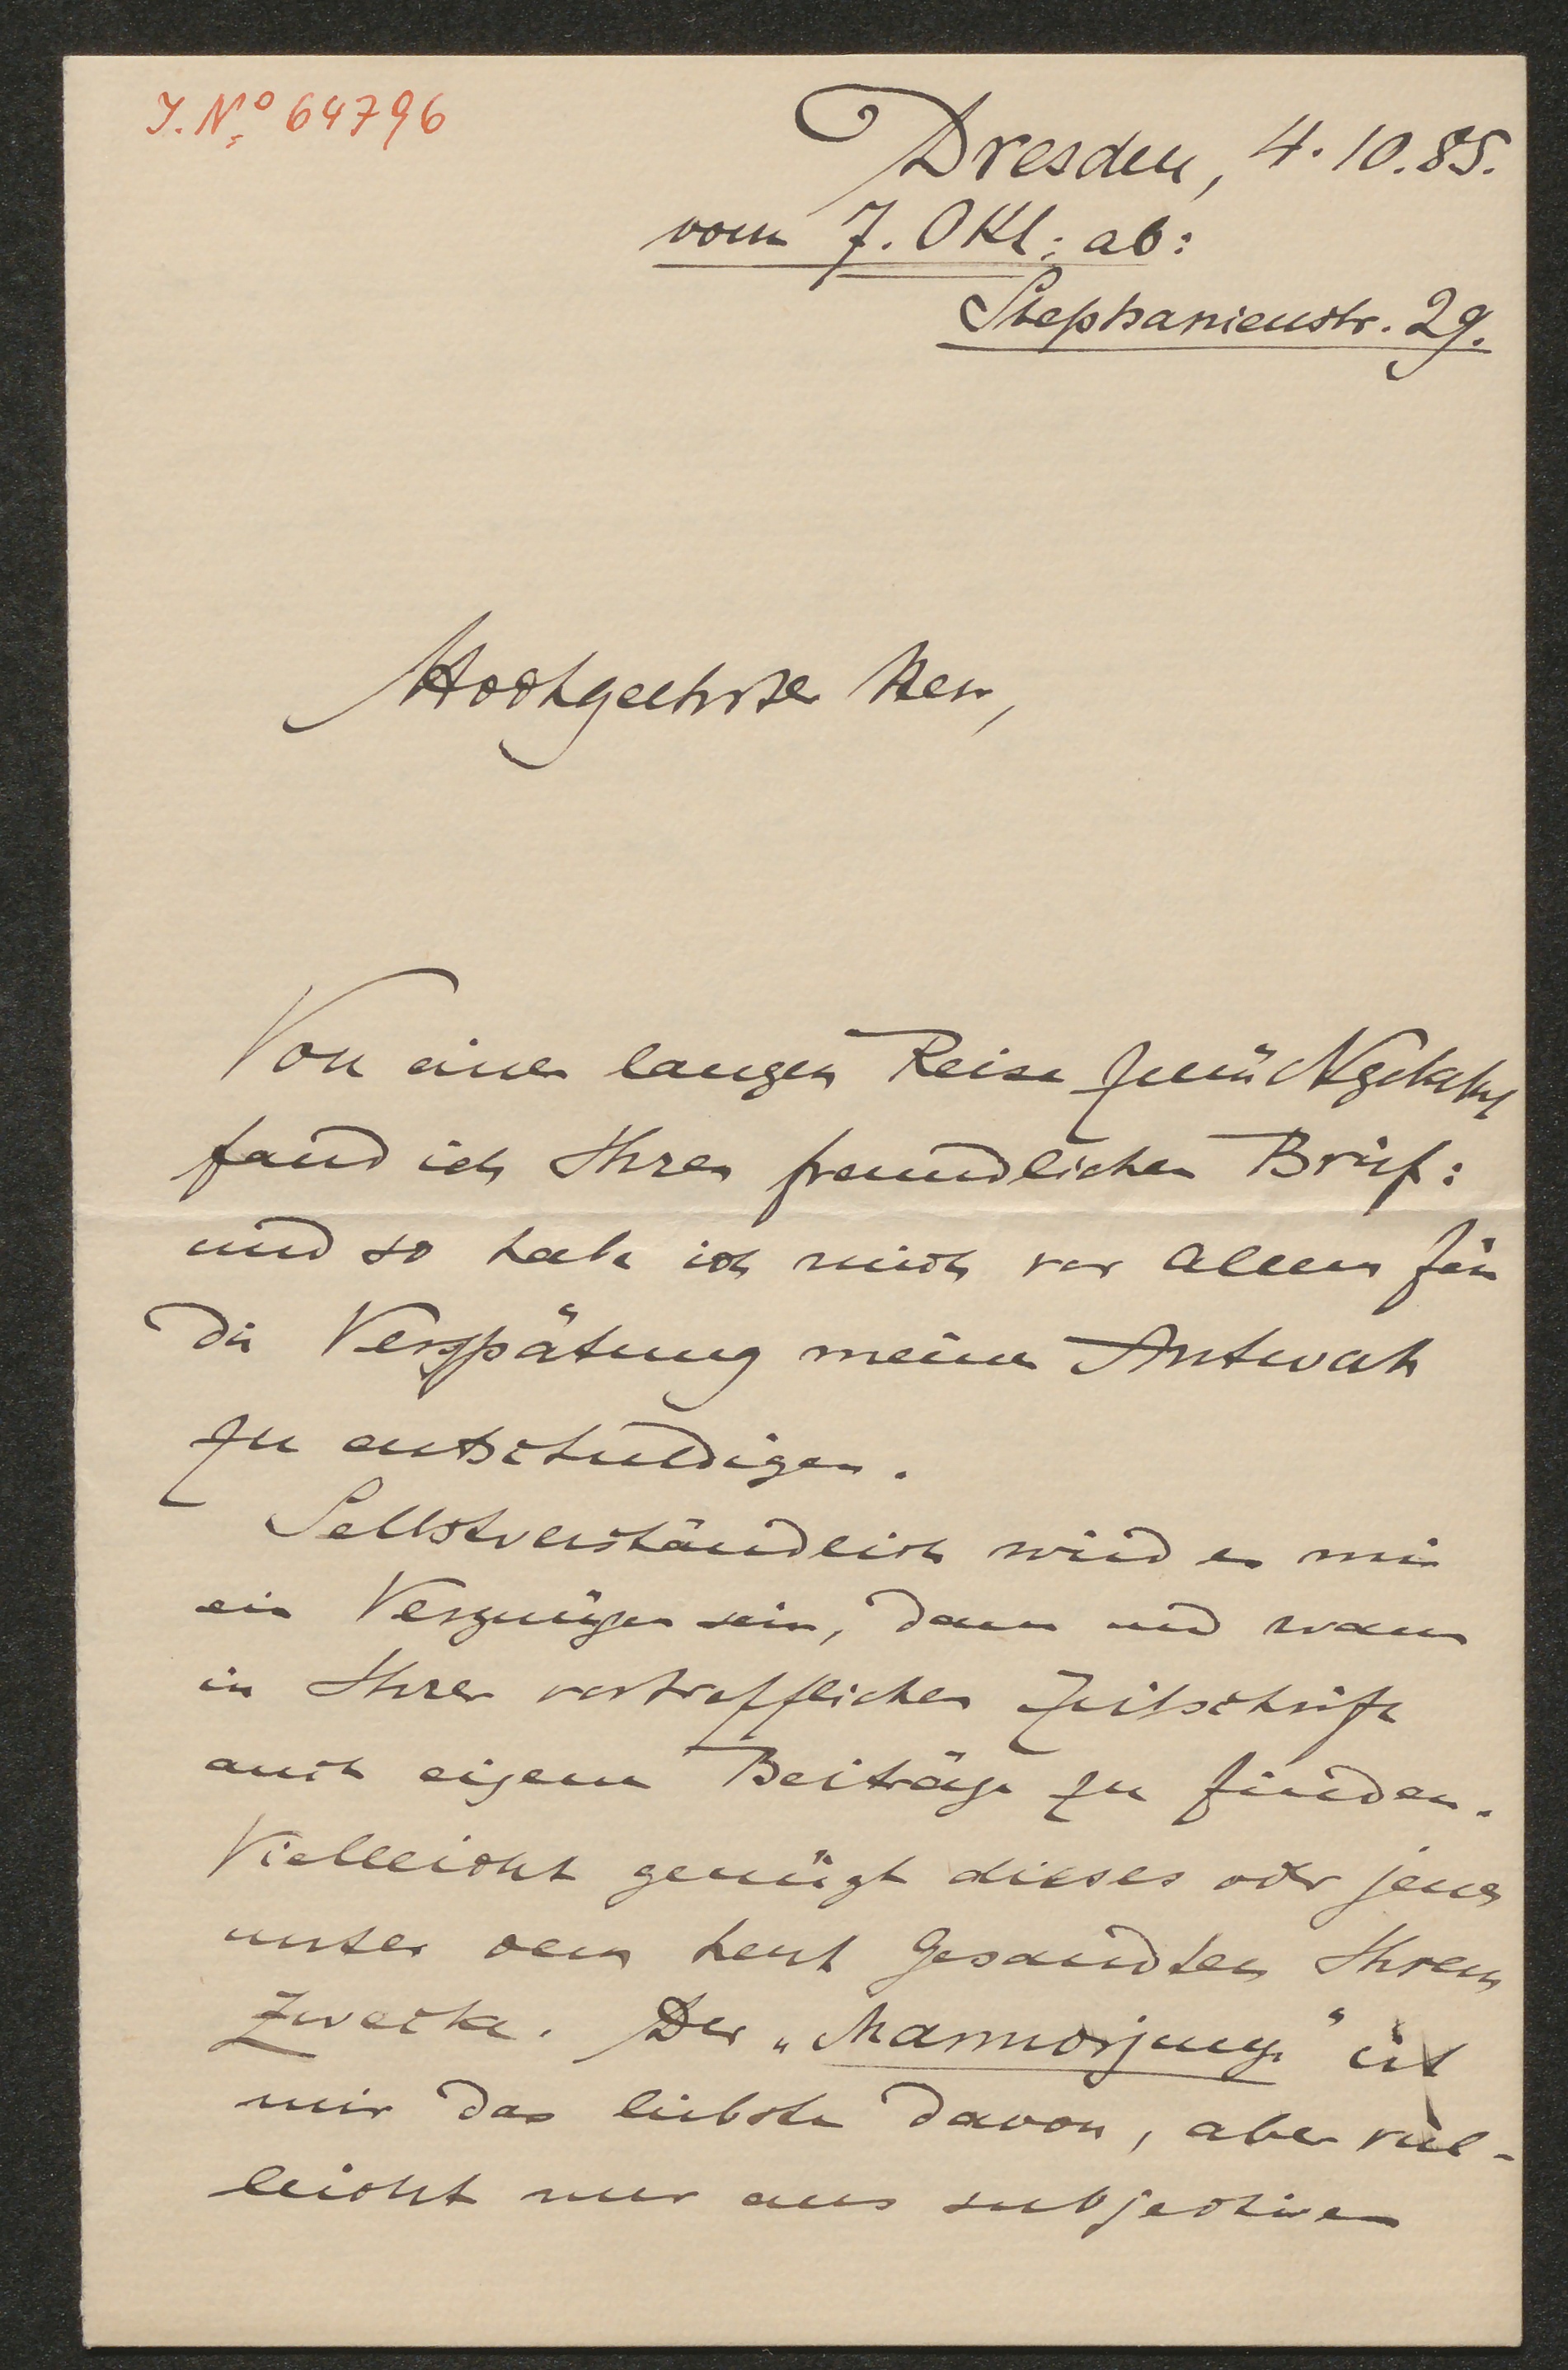 J. N.º 64796
Dresden, 4. 10. 85.
vom 7. Okt. ab:
Stephanienstr. 29.
Hochgeehrter Herr,
Von einer langen Reise zurückgekehrt
fand ich Ihren freundlichen Brief:
und so habe ich mich vor allem für
die Verspätung meiner Antwort
zu entschuldigen.
Selbstverständlich wird es mir
ein Vergnügen sein, dann und wann
in Ihrer vortrefflichen Zeitschrift
auch eigene Beiträge zu finden.
Vielleicht genügt dieses oder jenes
unter dem heut Gesandten Ihrem
Zwecke. Der „Marmorjunge" ist
mir das liebste davon, aber viel-
leicht nur aus subjectiven